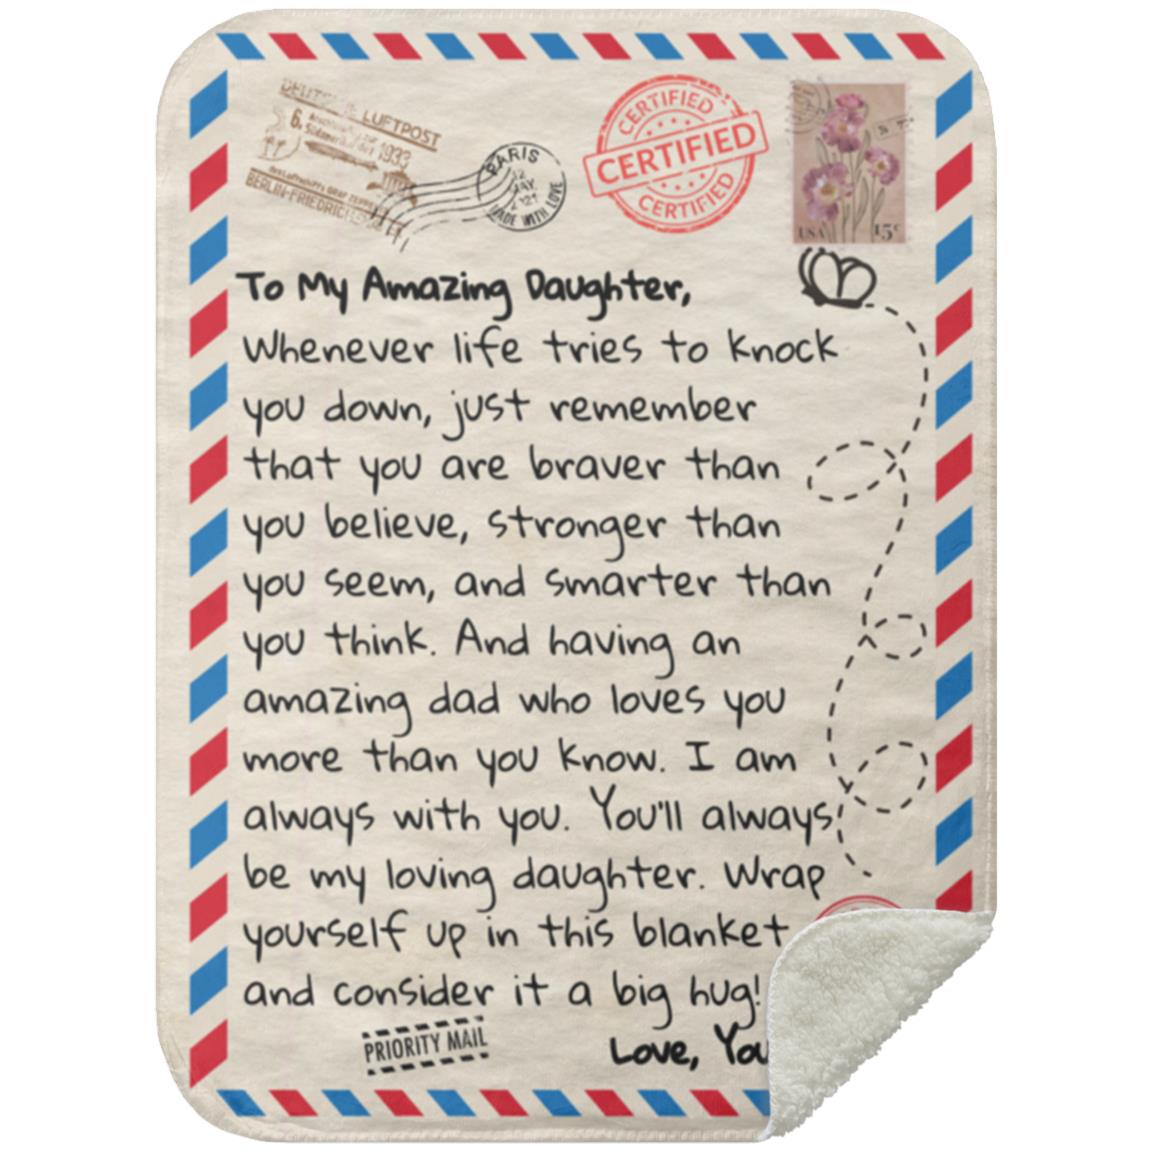 DEUTSCHE LUFTPOST
6.
1933
BERLIN-FRIEDRICH
PARIS
MADE WITH LOVE
CERTIFIED
CERTIFIED
CERTIFIED
USA 15c
To My Amazing Daughter,
Whenever life tries to knock
you down, just remember
that you are braver than
you believe, stronger than
you seem, and smarter than
you think. And having an
amazing dad who loves you
more than you know. I am
always with you. You'll always
be my loving daughter. Wrap
yourself up in this blanket
and consider it a big hug!
PRIORITY MAIL
Love, You